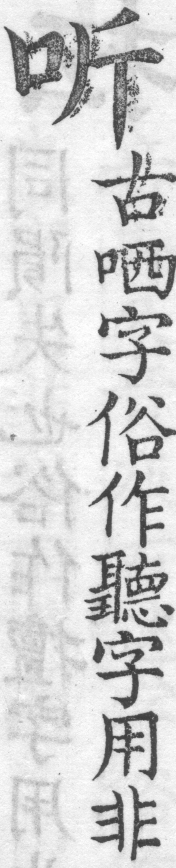 听古哂字俗作聽字用非